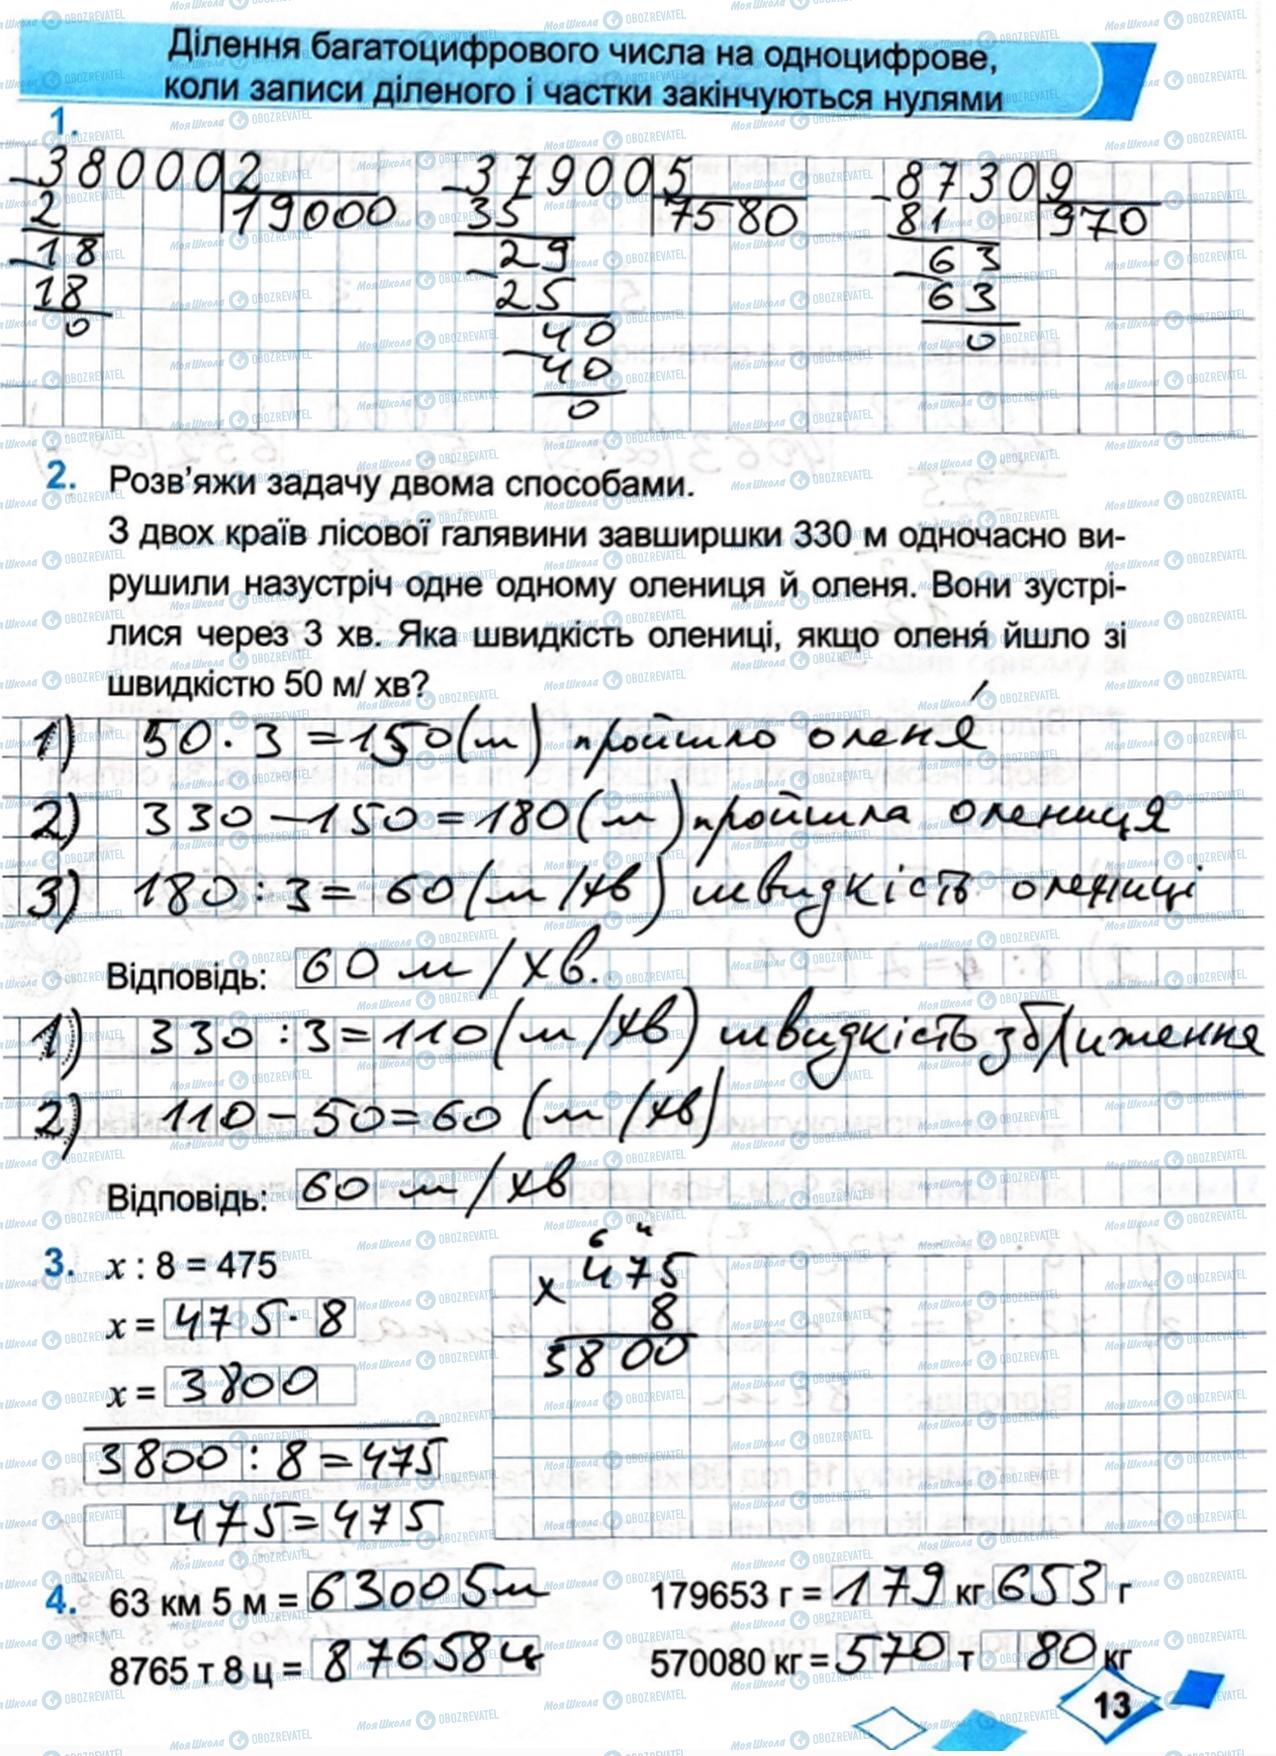 Ділення багатоцифрового числа на одноцифрове,
коли записи діленого і частки закінчуються нулями
1.
38000 2 37900 5 8730 9
2 19000 35 7580 81 970
18 29 63
18 25 63
0 40 0
40
0
2. Розв’яжи задачу двома способами.
З двох країв лісової галявини завширшки 330 м одночасно ви-
рушили назустріч одне одному олениця й оленя. Вони зустрі-
лися через 3 хв. Яка швидкість олениці, якщо оленя́ йшло зі
швидкістю 50 м/ хв?
1) 50 · 3 = 150 (м) пройшло оленя́
2) 330 – 150 = 180 (м) пройшла олениця
3) 180 : 3 = 60 (м/хв) швидкість олениці
Відповідь: 60 м/хв.
1) 330 : 3 = 110 (м/хв) швидкість зближення
2) 110 – 50 = 60 (м/хв)
Відповідь: 60 м/хв
3. x : 8 = 475
x = 475 · 8
x = 3800
3800 : 8 = 475
475 = 475
6 4
× 475
8
3800
4. 63 км 5 м = 63005м 179653 г = 179 кг 653 г
8765 т 8 ц = 87658 ц 570080 кг = 570 т 80 кг
13